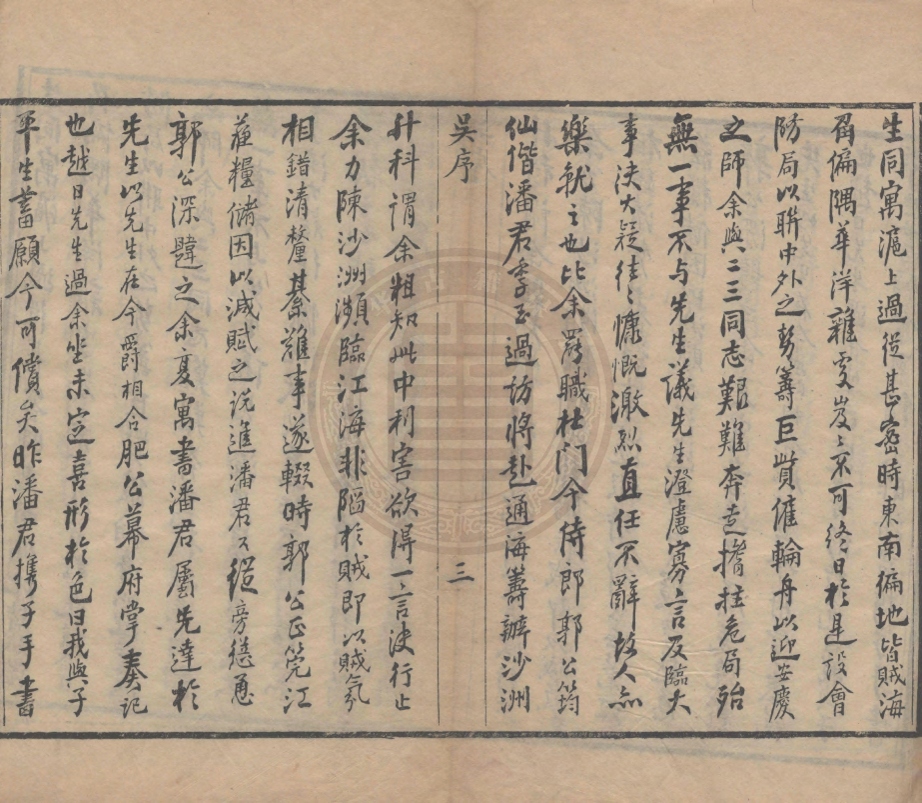 生同寓滬上過從甚密時東南徧地皆賊海
舀偏隅華洋雜處岌岌不可終日於是設會
防局以聯中外之勢籌巨貲僱輪舟以迎安慶
之師余與二三同志艱難奔走撐拄危局殆
無一事不与先生議先生澄慮寡言及臨大
事決大疑往〻慷慨激烈直任不辭故人亦
樂就之也比余罷職杜門今侍郎郭公筠
仙偕潘君季玉過訪將赴通海籌辦沙洲
吳序
三
升科謂余粗知此中利害欲得一言決行止
余力陳沙洲瀕臨江海非陷於賊即以賊氛
相錯清釐綦難事遂輟時郭公正筦江
蘇糧儲因以減賦之說進潘君又從旁慫恿
郭公深韙之余夏寓書潘君屬先達於
先生以先生在今爵相合肥公幕府掌奏記
也越日先生過余坐未定喜形於色曰我與子
平生蓄願今可償矣昨潘君攜子手書